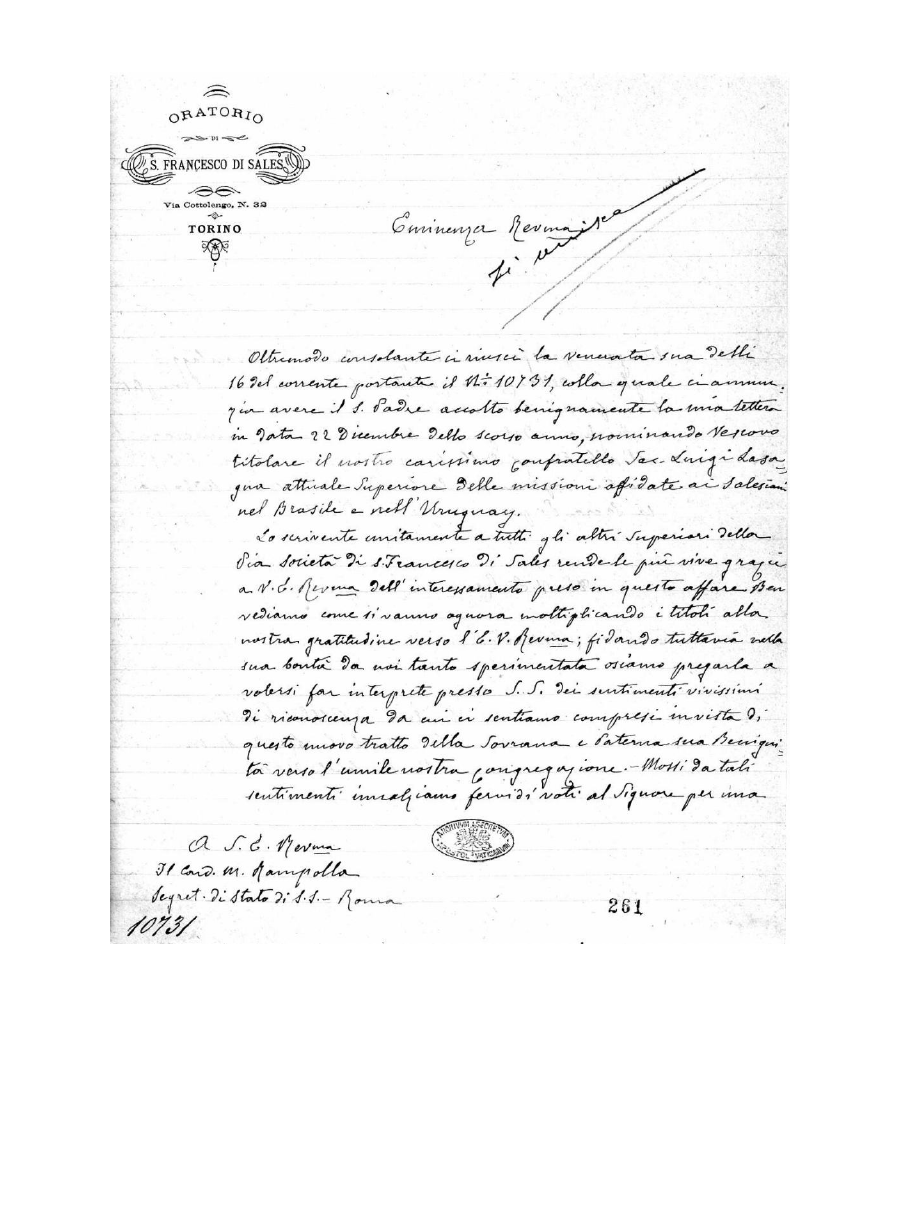 ORATORIO
DI
S. FRANCESCO DI SALES
Via Cottolengo, N. 32
TORINO
Eminenza Revma
Si unisca
Oltremodo consolante ci riuscì la venerata sua delli
16 del corrente portante il N.º 10731, colla quale ci annun-
zia avere il S. Padre accolto benignamente la mia lettera
in data 22 Dicembre dello scorso anno, nominando Vescovo
titolare il nostro carissimo confratello Sac. Luigi Lasa=
gna attuale Superiore delle missioni affidate ai Salesiani
nel Brasile e nell'Uruguay.
Lo scrivente unitamente a tutti gli altri Superiori della
Pia Società di S. Francesco di Sales rende le più vive grazie
a V. E. Revma dell'interessamento preso in questo affare Ben
vediamo come si vanno ognora moltiplicando i titoli alla
nostra gratitudine verso l'E. V. Revma; fidando tuttavia nella
sua bontà da noi tanto sperimentata osiamo pregarla a
volersi far interprete presso S. S. dei sentimenti vivissimi
di riconoscenza da cui ci sentiamo compresi in vista di
questo nuovo tratto della Sovrana e Paterna sua Benigni-
tà verso l'umile nostra Congregazione. - Mossi da tali
sentimenti innalziamo fervidi voti al Signore per una
A S. E. Revma
Il Card. M. Rampolla
Segret. di Stato di S. S. - Roma
10731
ARCHIVUM SECRETUM
APOSTOL. VATICANUM
261